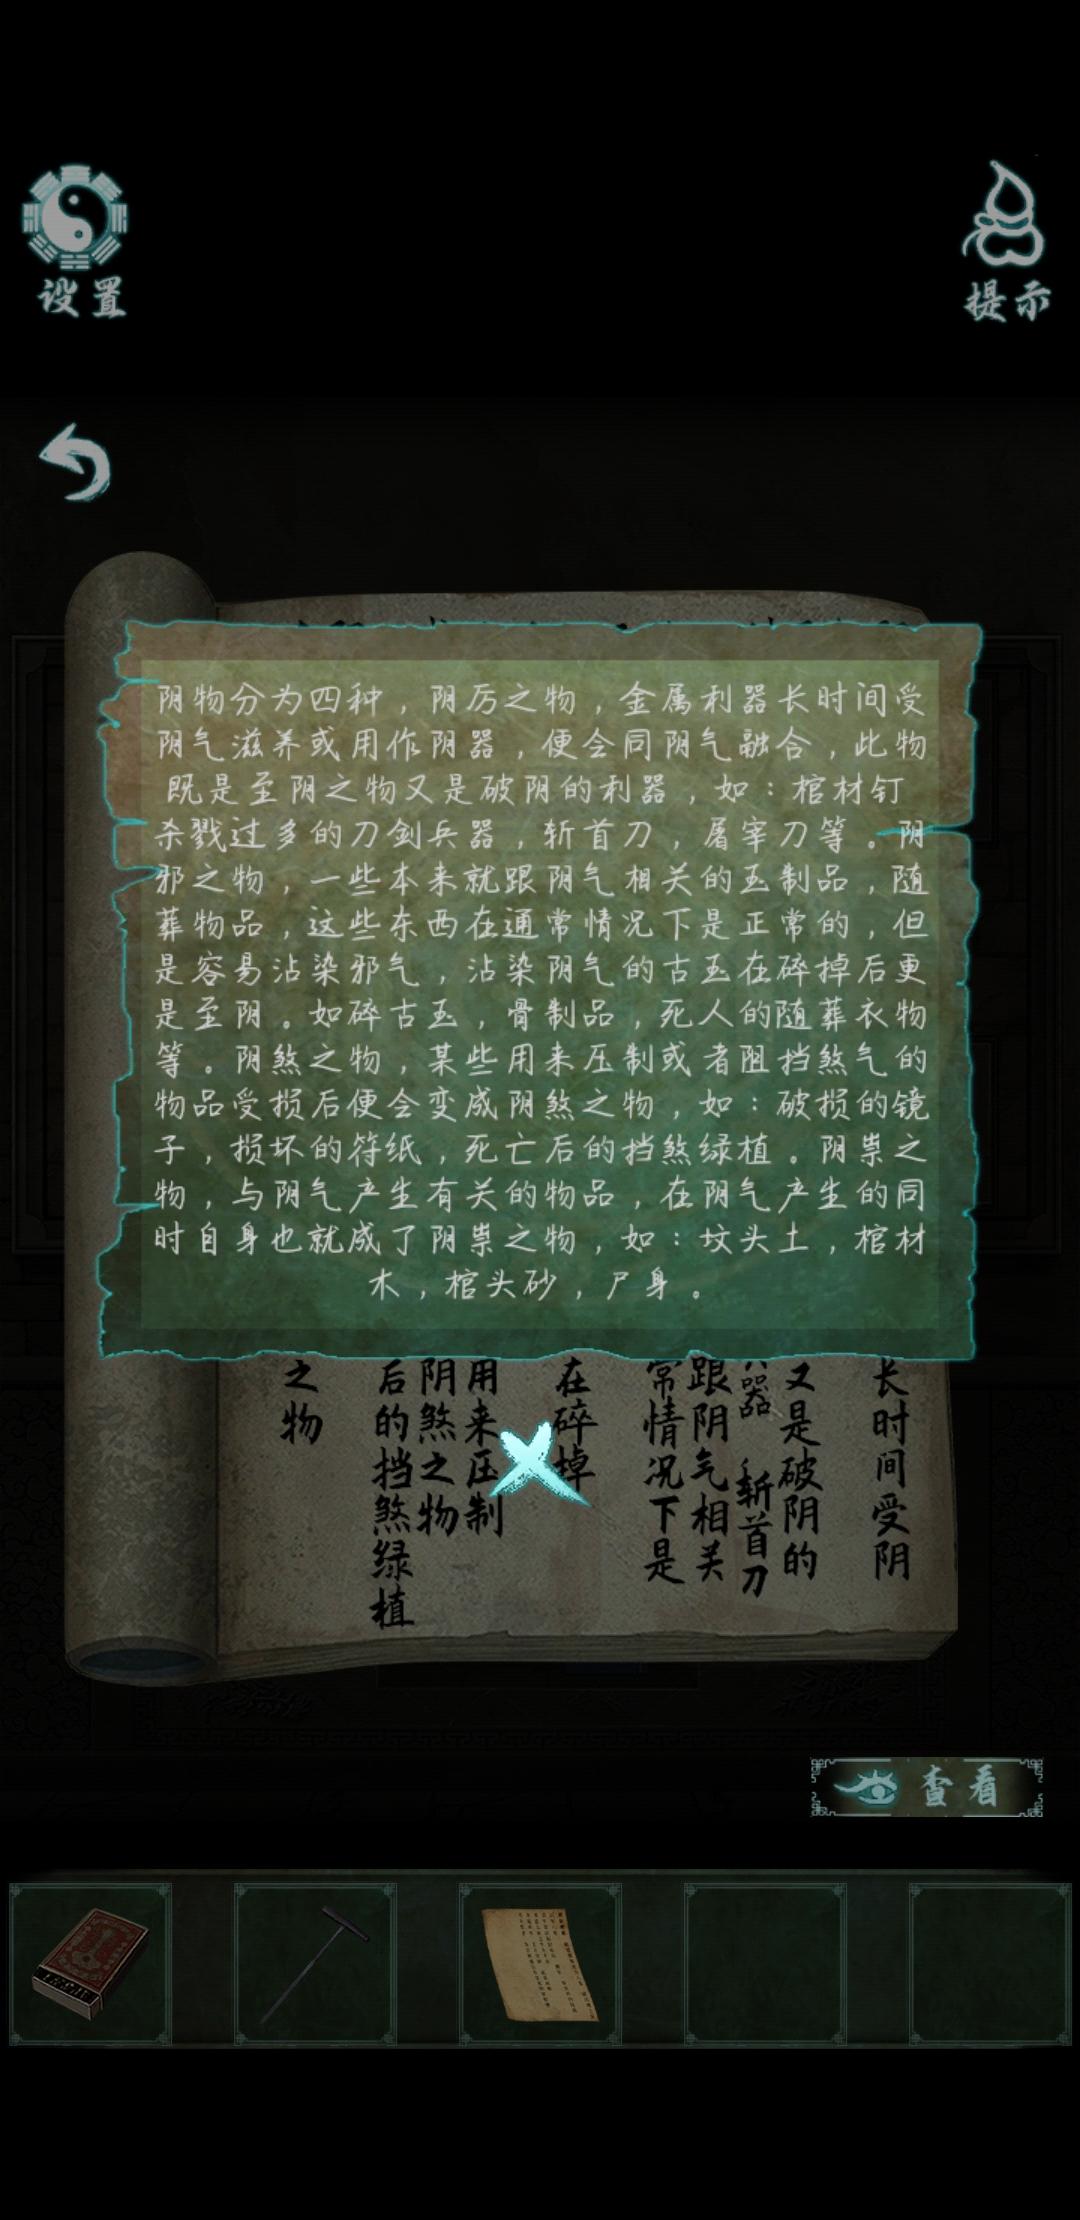 设置
提示
阴物分为四种，阴厉之物，金属利器长时间受
阴气滋养或用作阴器，便会同阴气融合，此物
既是至阴之物又是破阴的利器，如：棺材钉
杀戮过多的刀剑兵器，斩首刀，屠宰刀等。阴
邪之物，一些本来就跟阴气相关的玉制品，随
葬物品，这些东西在通常情况下是正常的，但
是容易沾染邪气，沾染阴气的古玉在碎掉后更
是至阴。如碎古玉，骨制品，死人的随葬衣物
等。阴煞之物，某些用来压制或者阻挡煞气的
物品受损后便会变成阴煞之物，如：破损的镜
子，损坏的符纸，死亡后的挡煞绿植。阴祟之
物，与阴气产生有关的物品，在阴气产生的同
时自身也就成了阴祟之物，如：坟头土，棺材
木，棺头砂，尸身。
长时间受阴
又是破阴的
器 斩首刀
跟阴气相关
常情况下是
在碎掉
用来压制
阴煞之物
后的挡煞绿植
之物
查看